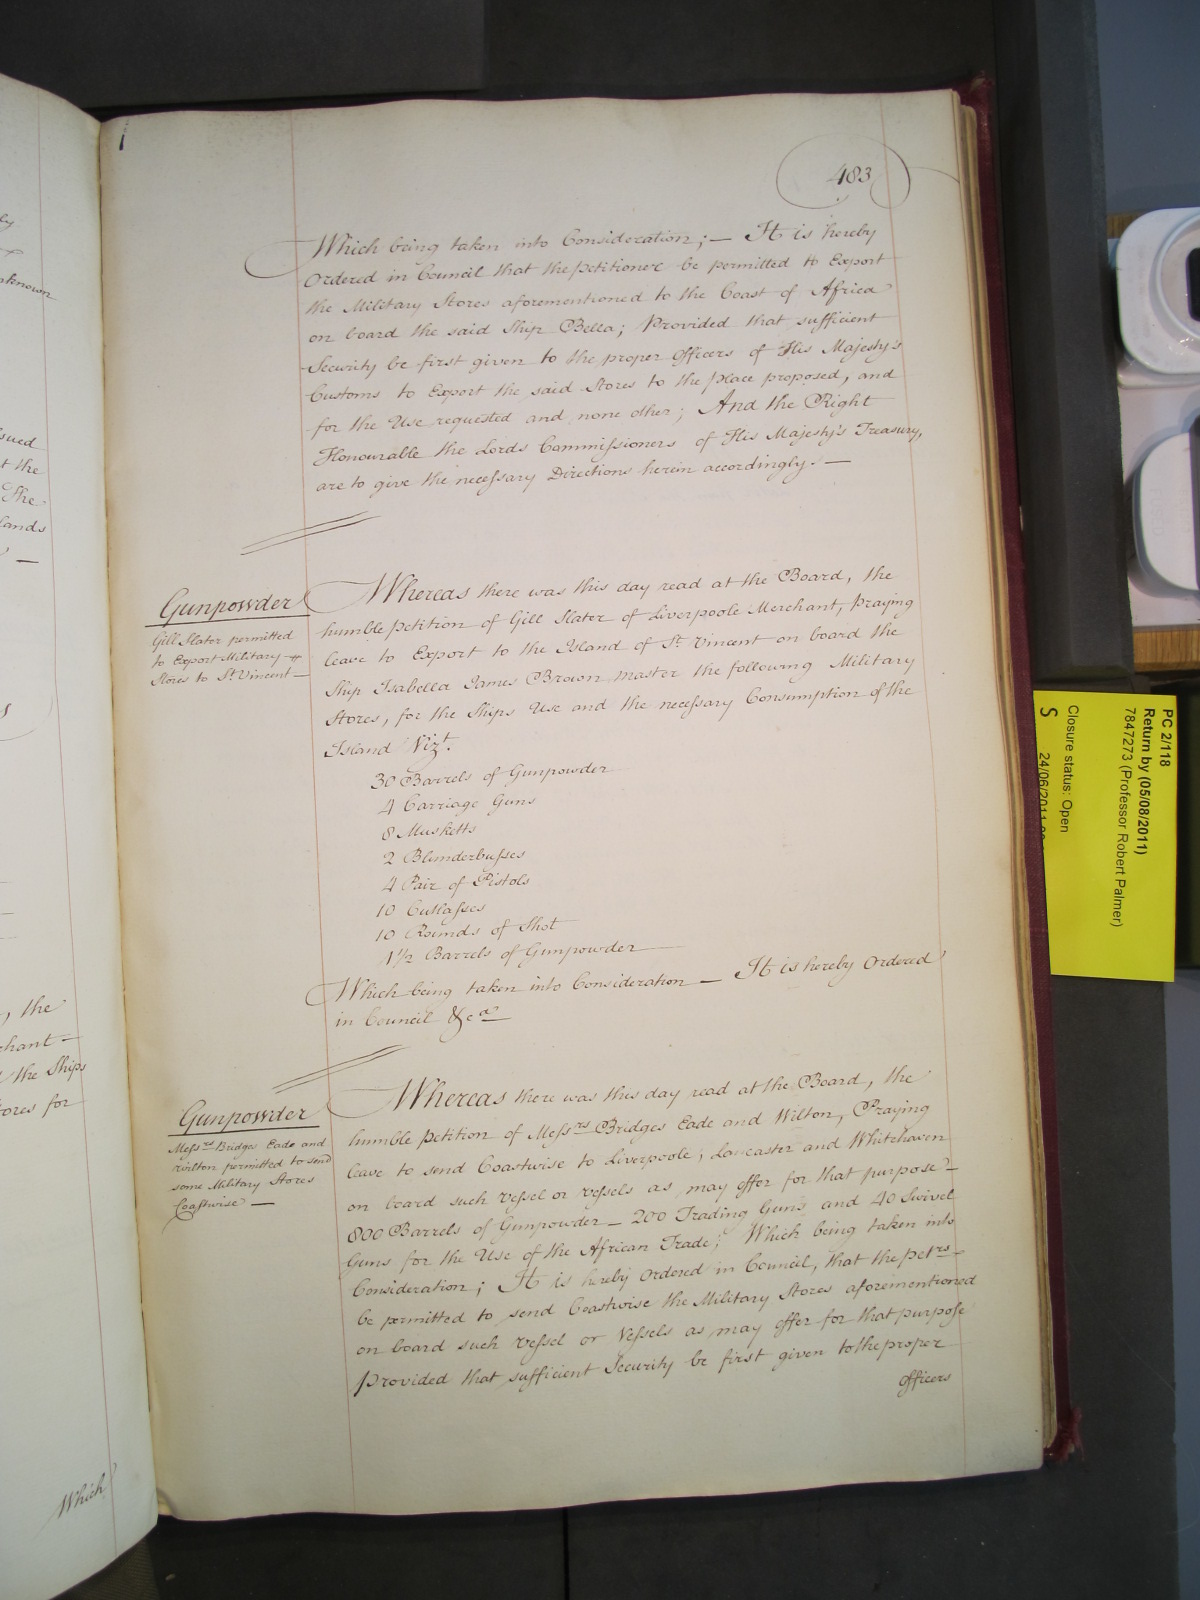 483
Which being taken into Consideration; — It is hereby
Ordered in Council that the petitioner be permitted to Export
the Military Stores aforementioned to the Coast of Africa
on board the said Ship Bella; Provided that sufficient
Security be first given to the proper Officers of His Majesty's
Customs to Export the said Stores to the place proposed, and
for the Use requested and none other; And the Right
Honourable the Lords Commissioners of His Majesty's Treasury,
are to give the necessary Directions herein accordingly. —
Gunpowder
Gill Slator permitted
to Export Military
Stores to St. Vincent —
Whereas there was this day read at the Board, the
humble petition of Gill Slater of Liverpoole Merchant, praying
leave to Export to the Island of St. Vincent on board the
Ship Isabella James Brown master the following Military
Stores, for the Ships Use and the necessary Consumption of the
Island Vizt.
30 Barrels of Gunpowder
4 Carriage Guns
8 Musketts
2 Blunderbusses
4 Pair of Pistols
10 Cutlasses
10 Rounds of Shot
1½ Barrels of Gunpowder
Which being taken into Consideration — It is hereby Ordered
in Council &ca
Gunpowder
Messrs Bridges Eade and
Wilton permitted to send
some Military Stores
Coastwise —
Whereas there was this day read at the Board, the
humble petition of Messrs Bridges Eade and Wilton, Praying
leave to send Coastwise to Liverpoole, Lancaster and Whitehaven
on board such vessel or vessels as may offer for that purpose
800 Barrels of Gunpowder — 200 Trading Guns and 40 Swivel
Guns for the Use of the African Trade; Which being taken into
Consideration; It is hereby Ordered in Council, that the petrs
be permitted to send Coastwise the Military Stores aforementioned
on board such vessel or Vessels as may offer for that purpose
Provided that sufficient Security be first given to the proper
Officers
PC 2/118
Return by (05/08/2011)
7847273 (Professor Robert Palmer)
Closure status: Open
S 24/06/2011
known
sued
t the
The
lands
, the
chant —
the Ships
tores for
Which